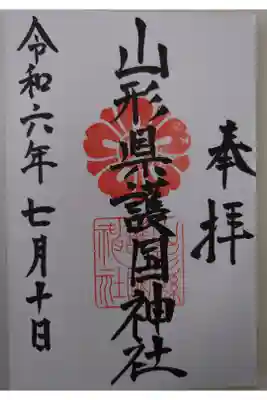 奉拝
山形県護国神社
令和六年七月十日